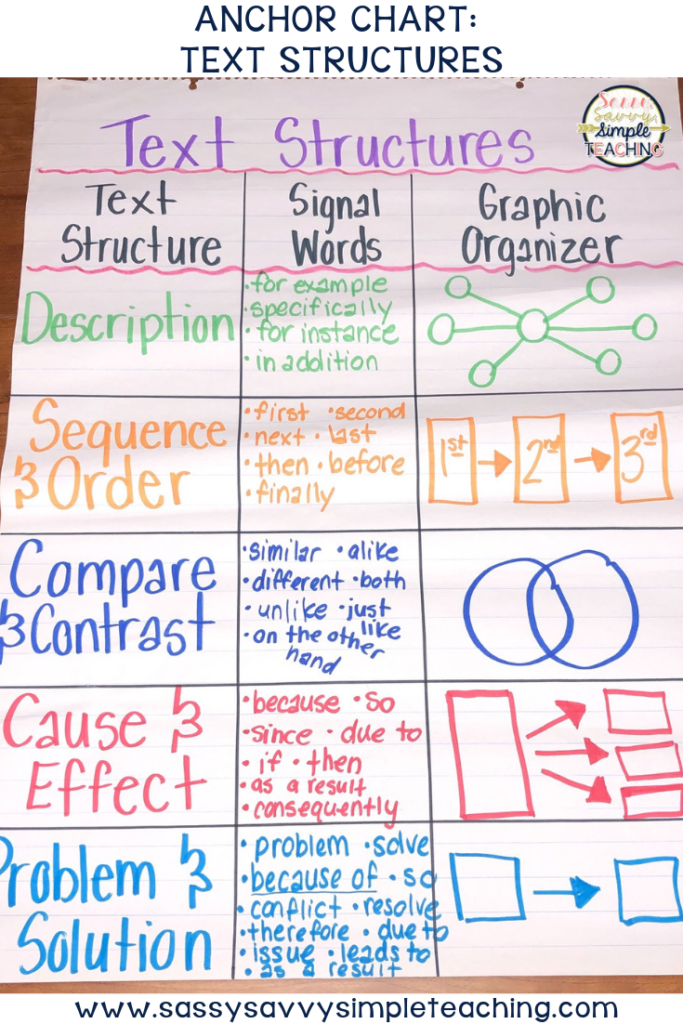 ANCHOR CHART:
TEXT STRUCTURES
Sassy
Savvy
Simple
TEACHING
Text Structures
Text
Structure
Signal
Words
Graphic
Organizer
Description
• for example
• specifically
• for instance
• in addition
Sequence
& Order
• first • second
• next • last
• then • before
• finally
1st 2nd 3rd
Compare
& Contrast
• similar • alike
• different • both
• unlike • just like
• on the other
hand
Cause &
Effect
• because • so
• since • due to
• if • then
• as a result
• consequently
Problem &
Solution
• problem • solve
• because of • so
• conflict • resolve
• therefore • due to
• issue • leads to
• as a result
www.sassysavvysimpleteaching.com